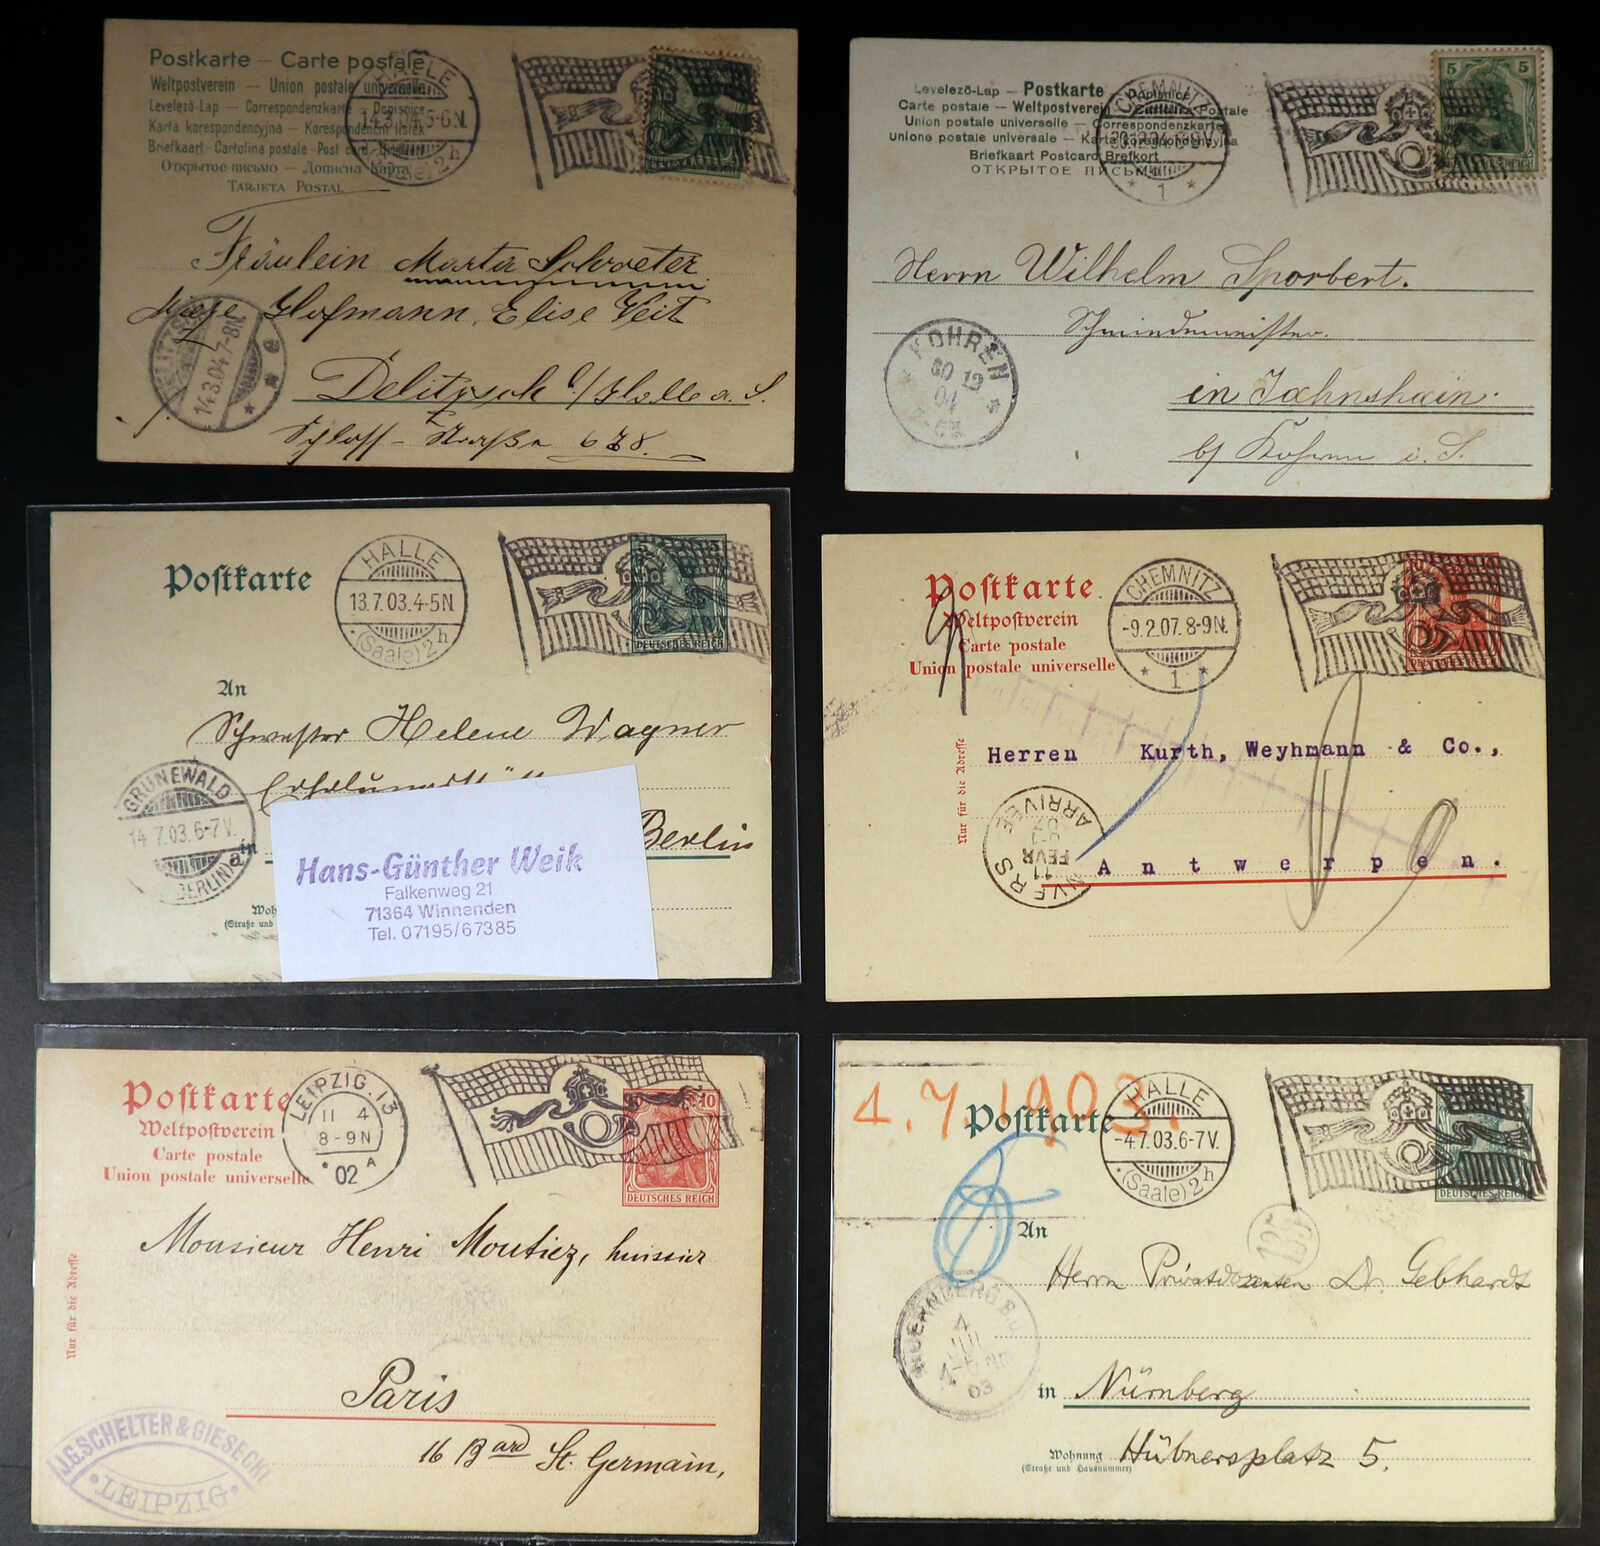 Postkarte – Carte postale
Weltpostverein – Union postale universelle
Levelező-Lap – Correspondenzkarte – Dopisnice
Karta korespondencyjna – Korespondenční lístek
Briefkaart – Cartolina postale – Post card
Открытое письмо – Дописна Карта
TARJETA POSTAL
HALLE
14.3.04.5-6N.
(Saale) 2h
Fräulein Marta Schroeter
Hofmann, Elise Veit
14.3.04.7-8N.
Delitzsch b/Halle a. S.
Schloss-Strasse 678.
Levelező-Lap – Postkarte – Dopisnice
Carte postale – Weltpostverein –
Union postale universelle – Correspondenzkarte
Unione postale universale – Karta korespondencyjna
Briefkaart Postcard Brefkort
ОТКРЫТОЕ ПИСЬМО
CHEMNITZ
1
5 5
DEUTSCHES REICH
Herrn Wilhelm Sporbert.
Schmiedemeister.
KOHREN
30 12
04
in Jahnshain.
b/ Kohren i. S.
Postkarte
HALLE
13.7.03.4-5N.
(Saale) 2h
5 5
DEUTSCHES REICH
An
Schwester Helene Wagner
GRUNEWALD
14.7.03.6-7V.
(BERLIN) a
in
Berlin
Woh
(Straße und
Hans-Günther Weik
Falkenweg 21
71364 Winnenden
Tel. 07195/67385
Postkarte.
Weltpostverein
Carte postale
Union postale universelle
CHEMNITZ
-9.2.07.8-9N.
1
Nur für die Adresse
Herren Kurth, Weyhmann & Co.,
ANVERS
ARRIVEE
11
FEVR
07
Antwerpen.
Postkarte
Weltpostverein
Carte postale
Union postale universelle
LEIPZIG. 13
11 4
8-9N
02 A
10
DEUTSCHES REICH
Nur für die Adresse
Monsieur Henri Moutiez, huissier
Paris
16 Bard St. Germain,
J.G. SCHELTER & GIESECKE
LEIPZIG
4.7.1903.
Postkarte
HALLE
-4.7.03.6-7V.
(Saale) 2h
DEUTSCHES REICH
An
125
Herrn Privatdozenten Dr. Gebhardt
NUERNBERG
03
in Nürnberg
Wohnung
(Straße und Hausnummer)
Hübnersplatz 5.